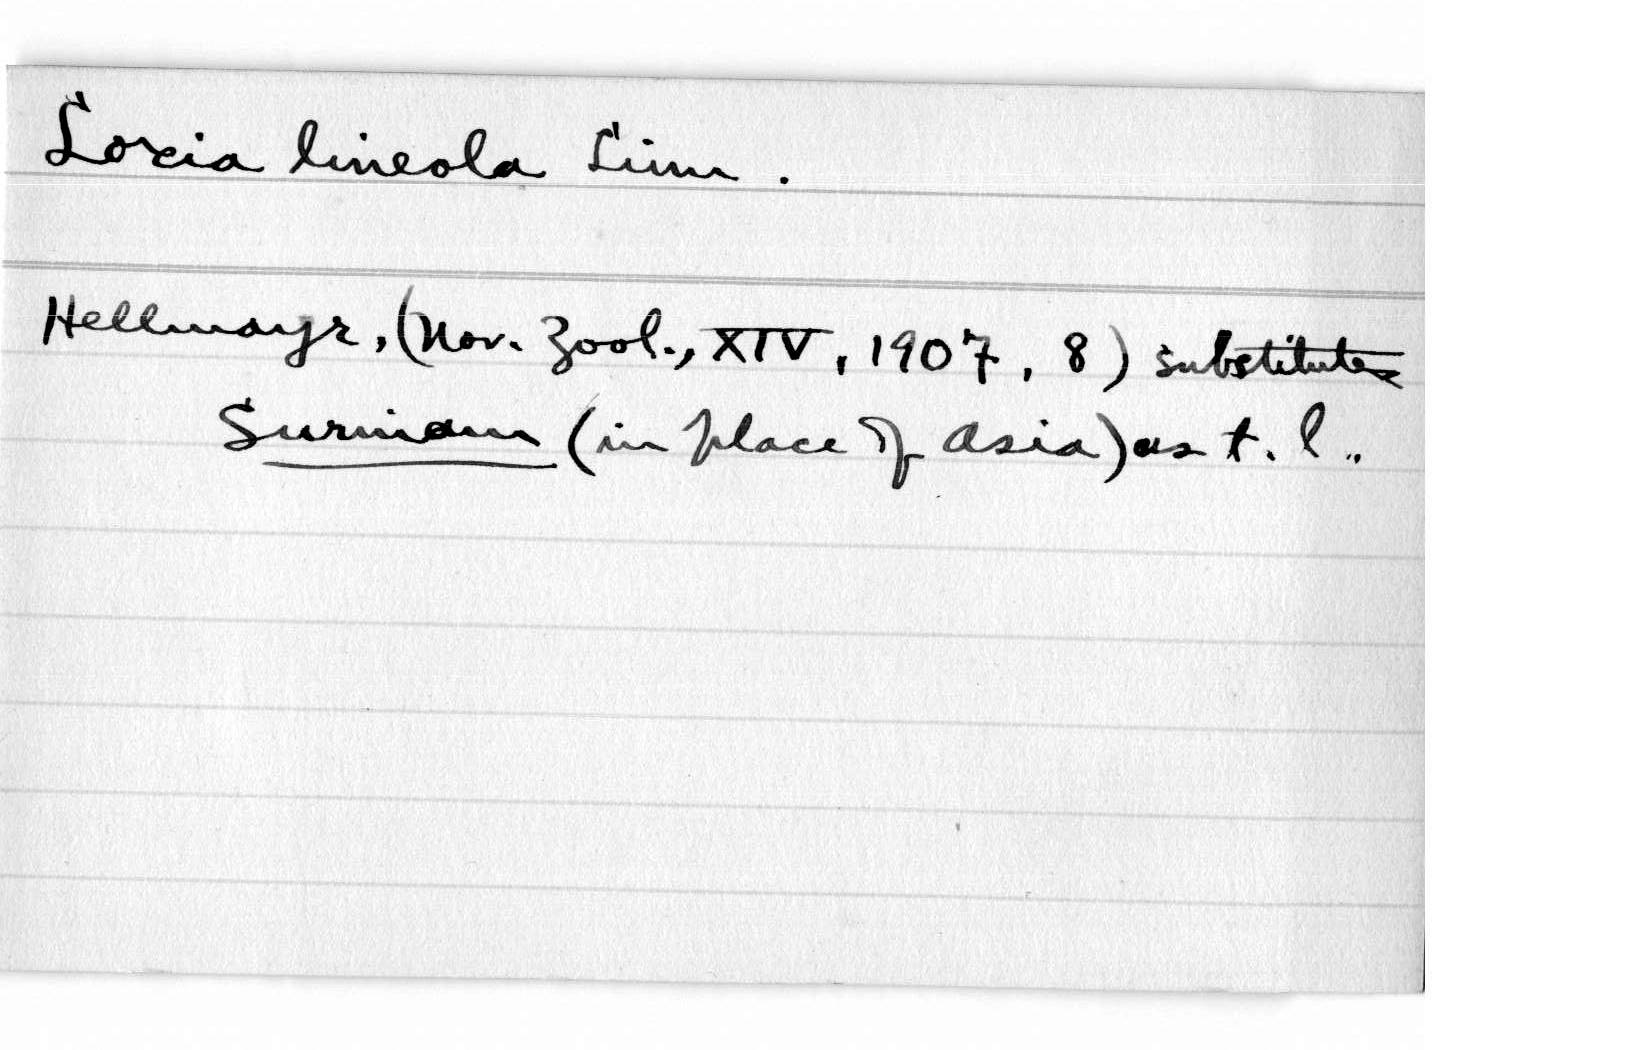 Loxia lineola Linn.
Hellmayr, (Nov. Zool., XIV, 1907, 8) substitutes
Surinam (in place of Asia) as t. l..